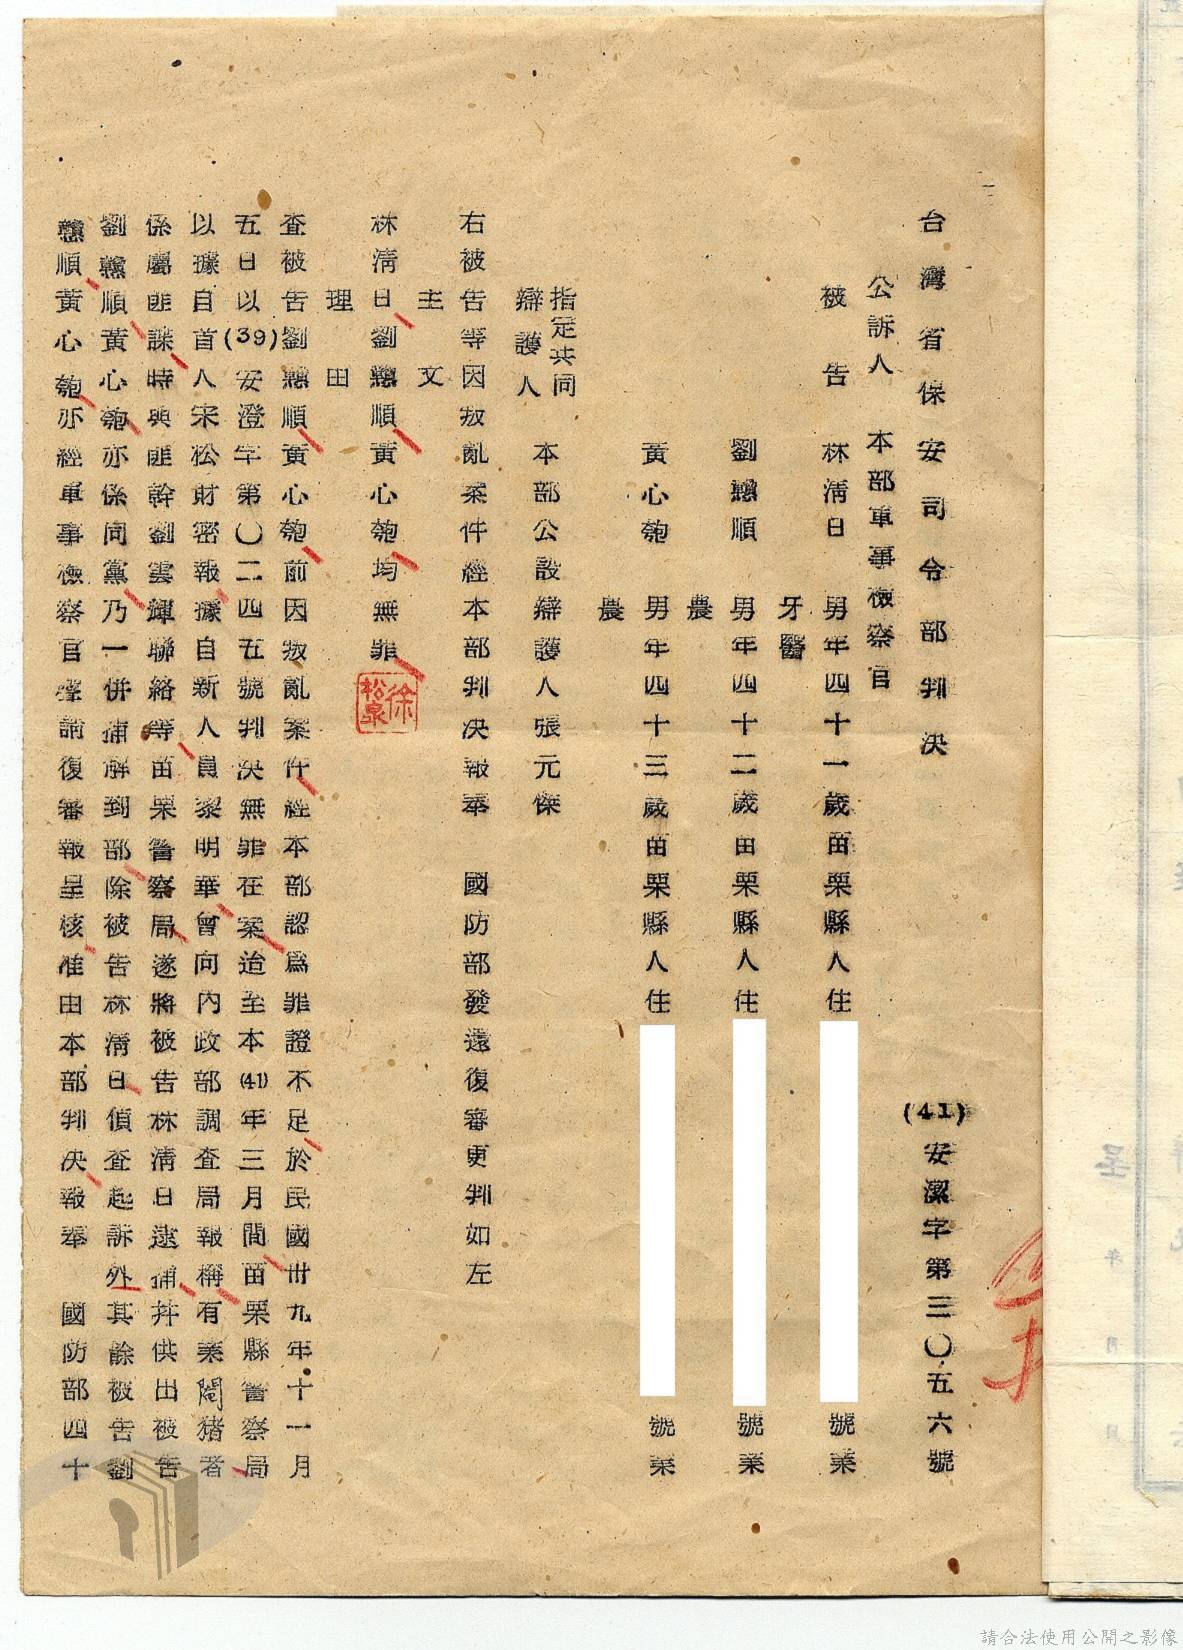 台灣省保安司令部判決
(41)安潔字第三〇五六號
公訴人 本部軍事檢察官
被告 林清日 男年四十一歲苗栗縣人住 號業
牙醫
劉戇順 男年四十二歲田栗縣人住 號業
農
黃心匏 男年四十三歲苗栗縣人住 號業
農
指定共同
辯護人 本部公設辯護人張元傑
右被告等因叛亂案件經本部判決報奉 國防部發還復審更判如左
主文
林清日劉戇順黃心匏均無罪
徐松泉
理由
查被告劉戇順黃心匏前因叛亂案件經本部認為罪證不足於民國卅九年十一月
五日以(39)安澄字第〇二四五號判決無罪在案迨至本(41)年三月間苗栗縣警察局
以據自首人宋松財密報據自新人員黎明華曾向內政部調查局報稱有業閹猪者
係屬匪諜時與匪幹劉雲輝聯絡等苗栗警察局遂將被告林清日逮捕并供出被告
劉戇順黃心匏亦係同黨乃一併捕解到部除被告林清日偵查起訴外其餘被告劉
戇順黃心匏亦經軍事檢察官聲請復審報呈核准由本部判決報奉 國防部四十
請合法使用公開之影像